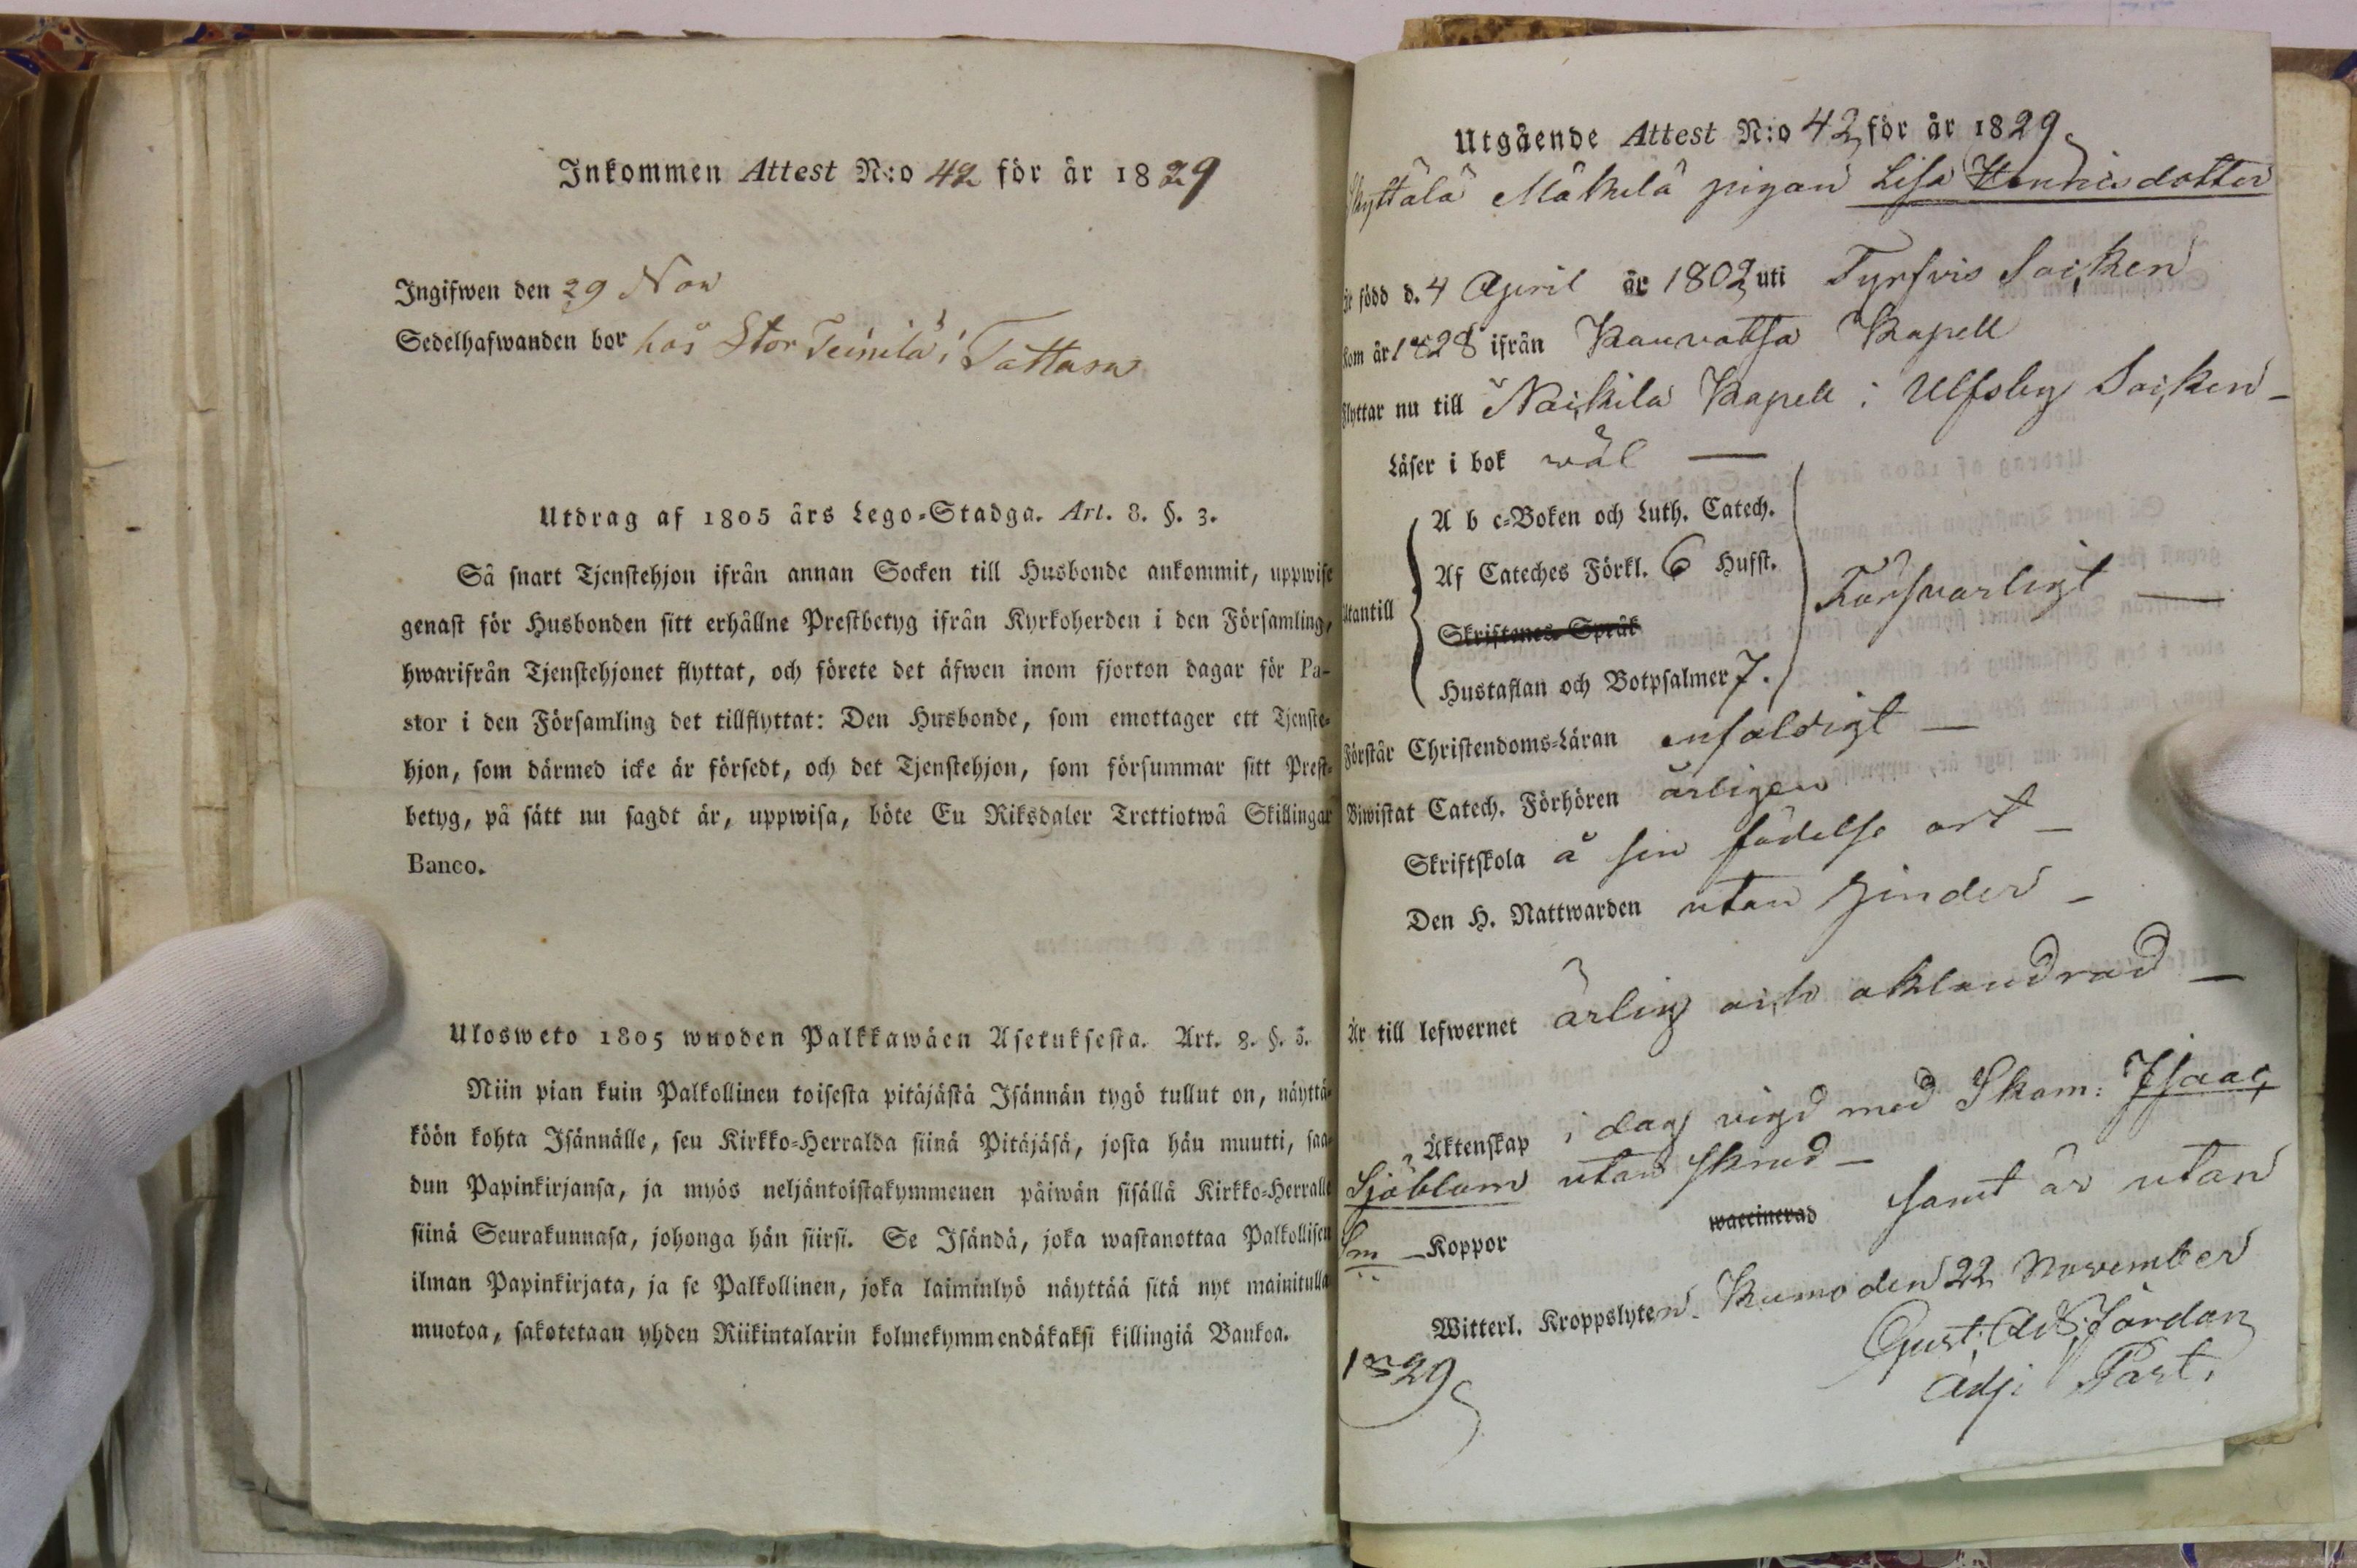 Inkommen Attest N:o 42 för år 1829
Ingifwen den 29 Nov
Sedelhafwanden bor hos Stor Teinilä i Tattara
Utdrag af 1805 års Lego-Stadga. Art. 8. §. 3.
Så snart Tjenstehjon ifrån annan Socken till Husbonde ankommit, uppwise
genast för Husbonden sitt erhållne Prestbetyg ifrån Kyrkoherden i den Församling,
hwarifrån Tjenstehjonet flyttat, och förete det äfwen inom fjorton dagar för Pa-
stor i den Församling det tillflyttat: Den Husbonde, som emottager ett Tjenste-
hjon, som därmed icke är försedt, och det Tjenstehjon, som försummar sitt Prest-
betyg, på sätt nu sagdt är, uppwisa, böte En Riksdaler Trettiotwå Skillingar
Banco.
Ulosweto 1805 wuoden Palkkawäen Asetuksesta. Art. 8. §. 3.
Niin pian kuin Palkollinen toisesta pitäjästä Isännän tygö tullut on, näyttä-
köön kohta Isännälle, sen Kirkko-Herralda siinä Pitäjäsä, josta hän muutti, saa-
dun Papinkirjansa, ja myös neljäntoistakymmenen päiwän sisällä Kirkko-Herralle
siinä Seurakunnasa, johonga hän siirsi. Se Isändä, joka wastanottaa Palkollisen
ilman Papinkirjata, ja se Palkollinen, joka laiminlyö näyttää sitä nyt mainitulla
muotoa, sakotetaan yhden Riikintalarin kolmekymmendäkaksi killingiä Bankoa.
Utgående Attest N:o 42 för år 1829
Skyttälä Mäkilä pigan Lisa Henricsdotter
är född d. 4 April år 1802 uti Tyrfvis Socken
kom år 1828 ifrån Kauvatsa Kapell
flyttar nu till Nackila Kapell i Ulfsby Socken -
Läser i bok wäl —
A b c-Boken och Luth. Catech.
Af Cateches Förkl. 6 Hufst.
Utantill
Skriftenes Språk
Försvarligt —
Hustaflan och Botpsalmer 7.
Förstår Christendoms-Läran enfaldigt —
Biwistat Catech. Förhören årligen
Skriftskola å sin födelse ort —
Den H. Nattwarden utan hinder -
Är till lefwernet ärlig och oklandrad —
Äktenskap i dag vigd med Skom: Isaac
Sjöblom utan skrud —
waccinerad samt är utan
Koppor
Witterl. Kroppslyten. Kumo den 22 November
1829
Gust. Ad. Jordan
Adj. Past.